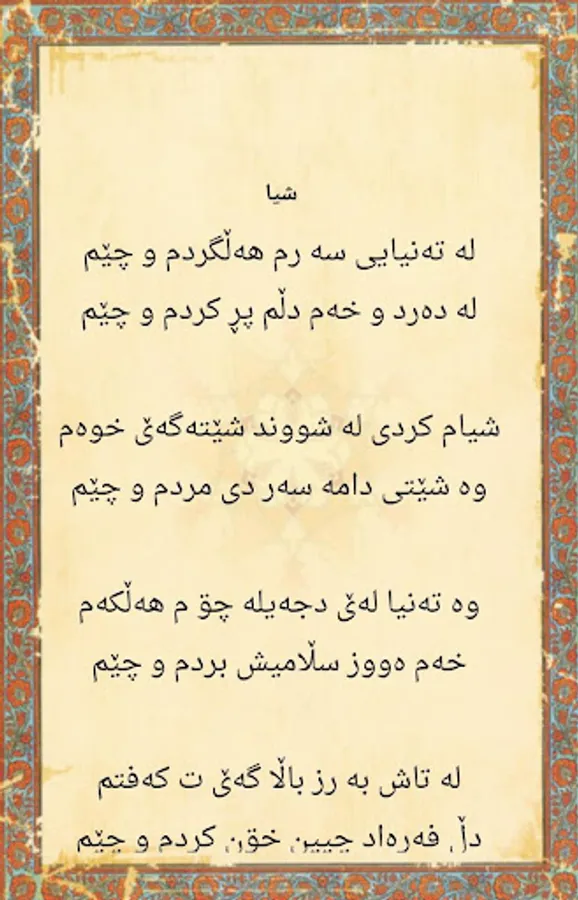 شیا
لە تەنیایی سە رم هەڵگردم و چێم
لە دەرد و خەم دڵم پڕ کردم و چێم
شیام کردی لە شووند شێتەگەێ خوەم
وە شێتی دامە سەر دی مردم و چێم
وە تەنیا لەێ دجەیلە چۊ م هەڵکەم
خەم ەووز سڵامیش بردم و چێم
لە تاش بە رز باڵا گەێ ت کەفتم
دڵ فەرەاد جیین خۊن کردم و چێم